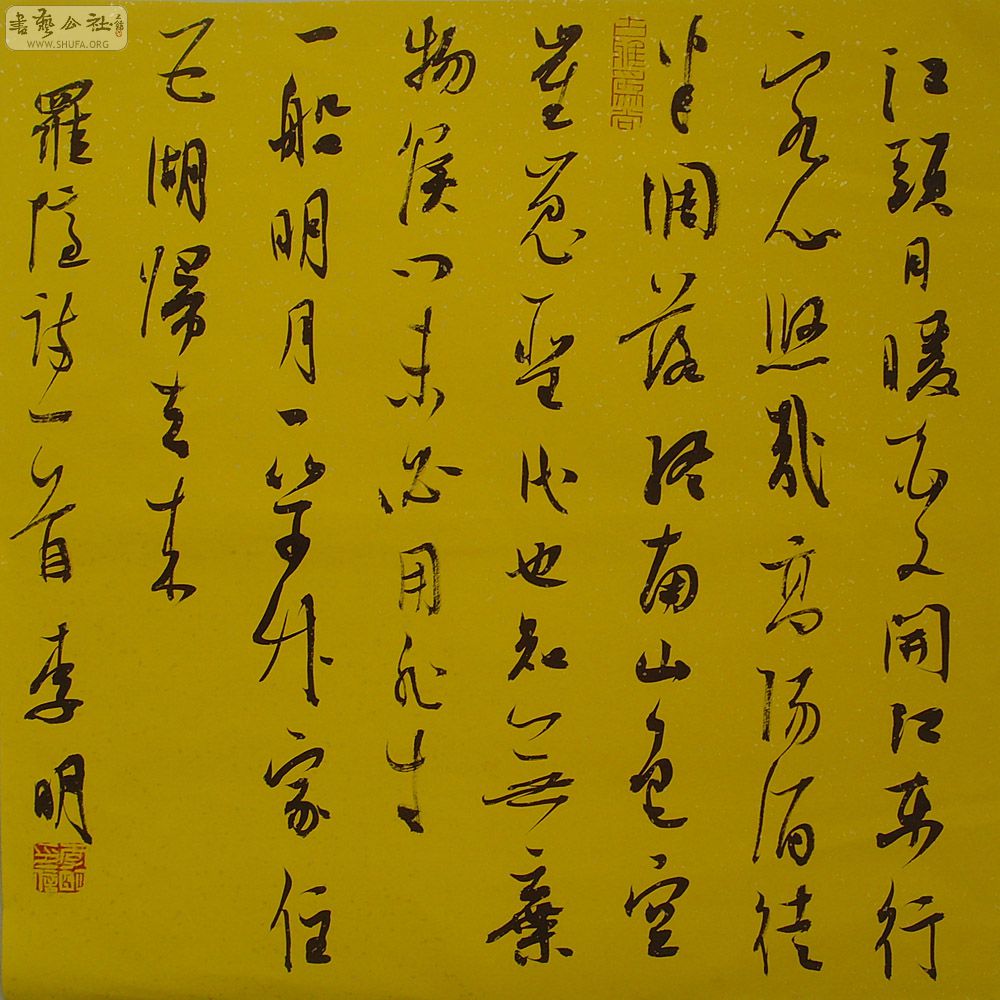 書藝公社
WWW.SHUFA.ORG
江頭日暖花又開江東行
客心悠哉高陽酒徒
半凋落終南山色空
崔嵬聖代也知無棄
物侯門未必用非才
一船明月一竿竹家住
五湖歸去來
羅隱詩一首 李明